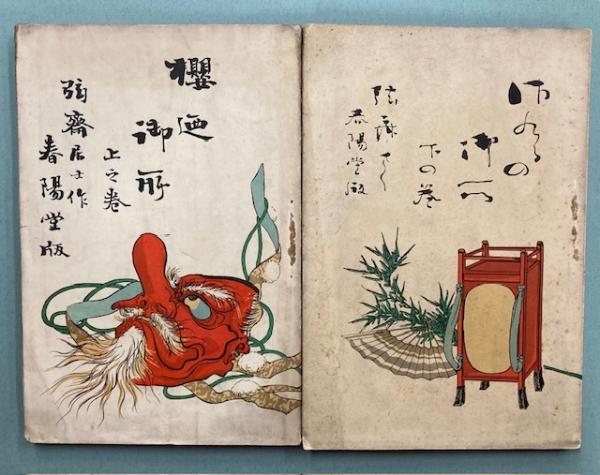 櫻廼
御所
上之巻
弦齋居士作
春陽堂版
の
御所
下の巻
弦齋さく
春陽堂版